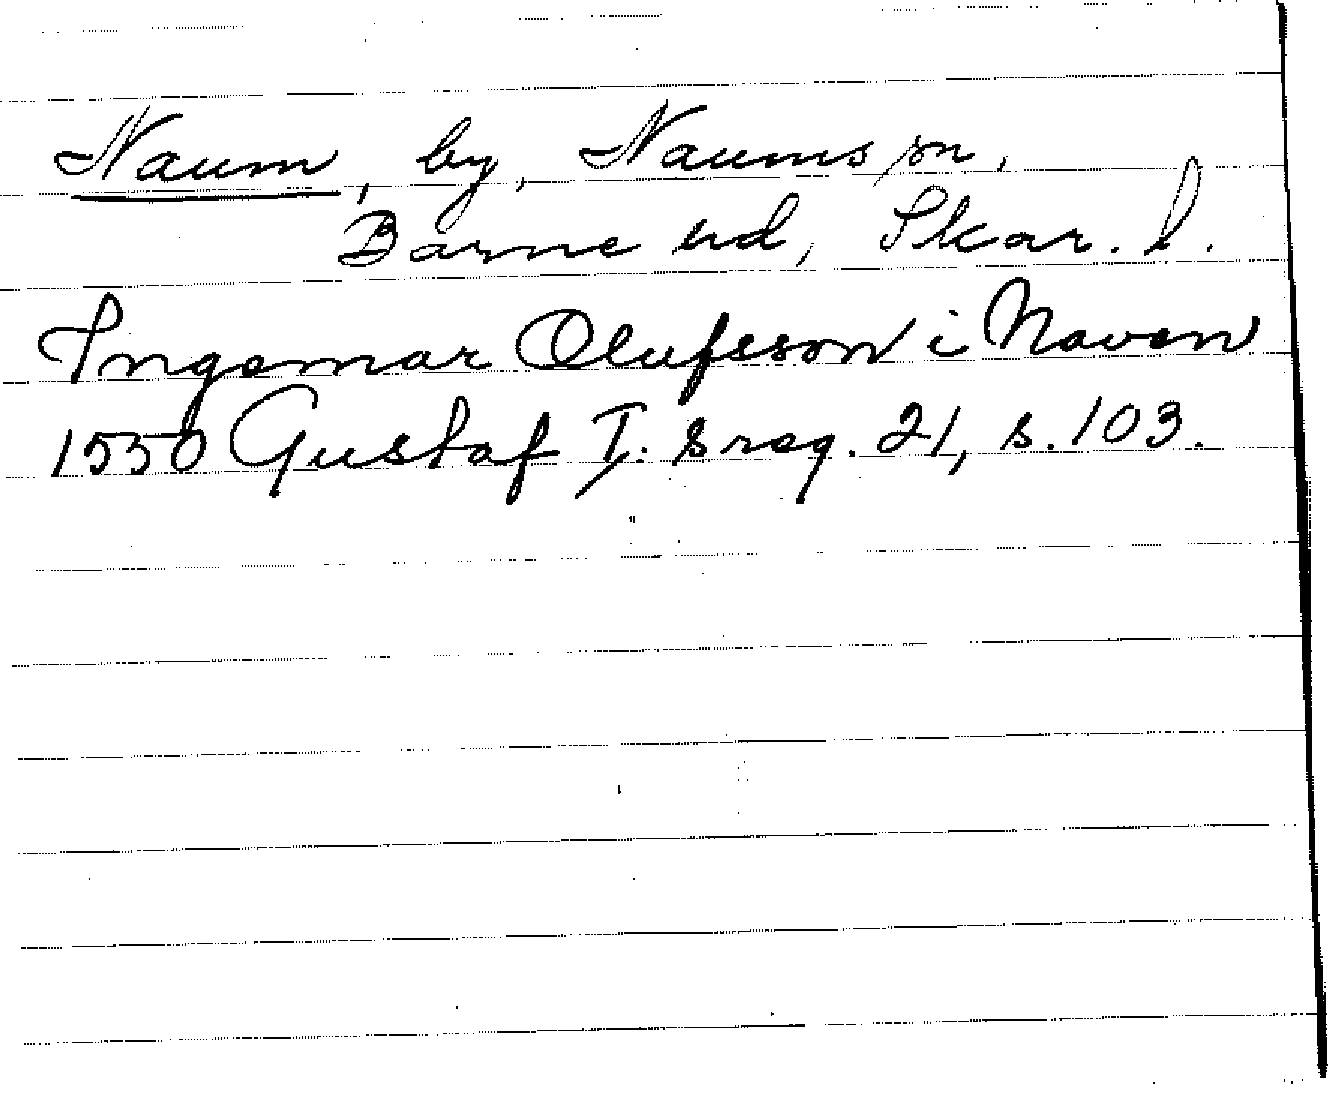 Naum, by, Naums sn,
Barne hd, Skar. l.
Ingemar Olufsson i Naven
1550 Gustaf I. s reg. 21, s. 103.